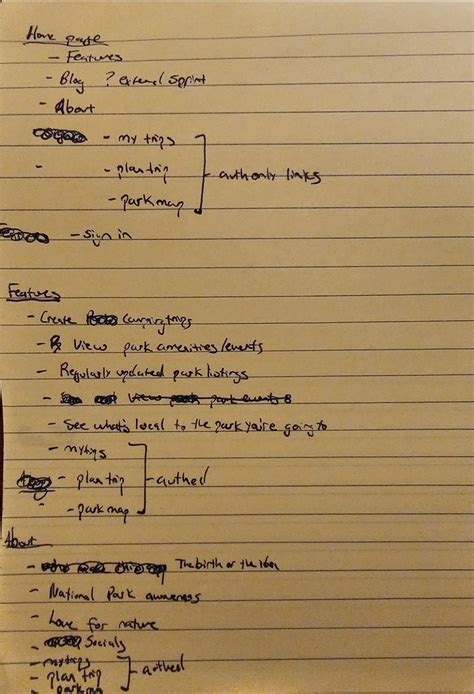 Home page
- Features
- Blog ? external sprint
- About
- my trips
- - plan trip
- park map
auth only links
- Sign in
Features
- Create camping trips
- View park amenities/events
- Regularly updated park listings
- View park events &
- See what's local to the park you're going to
- my trips
- plan trip
- authed
- park map
About
- The birth of the idea
- National Park awareness
- Love for nature
- Socials
- my trips
- plan trip
- authed
- park map